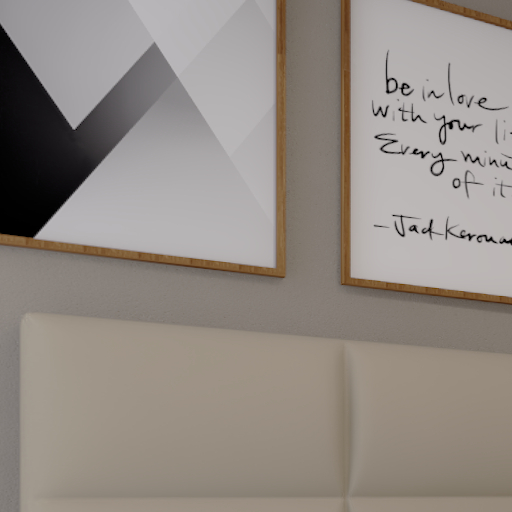 be in love
with your li
Every minu
of it
–Jack Keroua